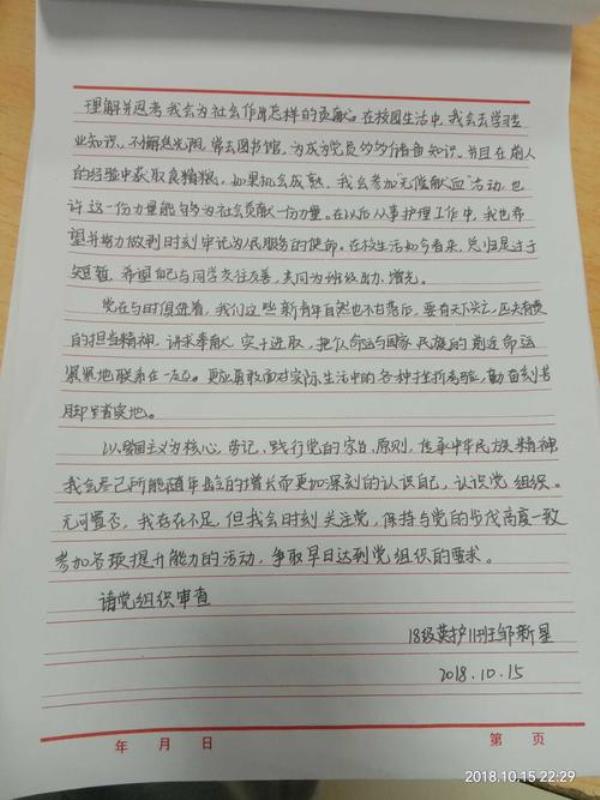 理解并思考我会为社会作出怎样的贡献。在校园生活中,我会去学习专
业知识、不懈怠光阴,常去图书馆,为成为党员多多储备知识。并且在前人
的经验中获取良精粮,如果机会成熟,我会参加“无偿献血”活动,也
许这一份力量能够为社会贡献一份力量。在以后从事护理工作中,我也希
望并努力做到时刻牢记为人民服务的使命。在校生活如今看来,总归是过于
短暂,希望自己与同学交往友善,共同为班级出力、增光。
党在与时俱进着,我们这些新青年自然也不甘落后,要有天下兴亡,匹夫有责
的担当精神,讲求奉献,实干进取,把个人命运与国家民族的前途命运
紧紧地联系在一起。更应勇敢面对实际生活中的各种挫折考验,勤奋刻苦
脚踏实地。
以爱国主义为核心,劳记、践行党的宗旨、原则,传承中华民族精神
我会尽己所能随年龄的增长而更加深刻的认识自己,认识党组织。
无可置否,我存在不足,但我会时刻关注党,保持与党的步伐高度一致
参加各项提升能力的活动,争取早日达到党组织的要求。
请党组织审查
18级英护11班邹新星
2018.10.15
年 月 日 第 页
2018.10.15 22:29